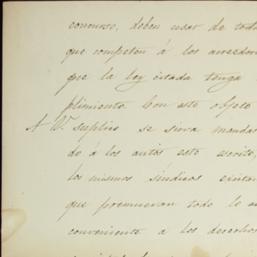 concurso, deben usar de todo
que competen á los acreedor
que la ley citada tenga
plimiento. Con este objeto
A V. suplico se sirva mandar
do á los autos este escrito,
los mismos síndicos
que promuevan todo lo
conveniente a los derechos